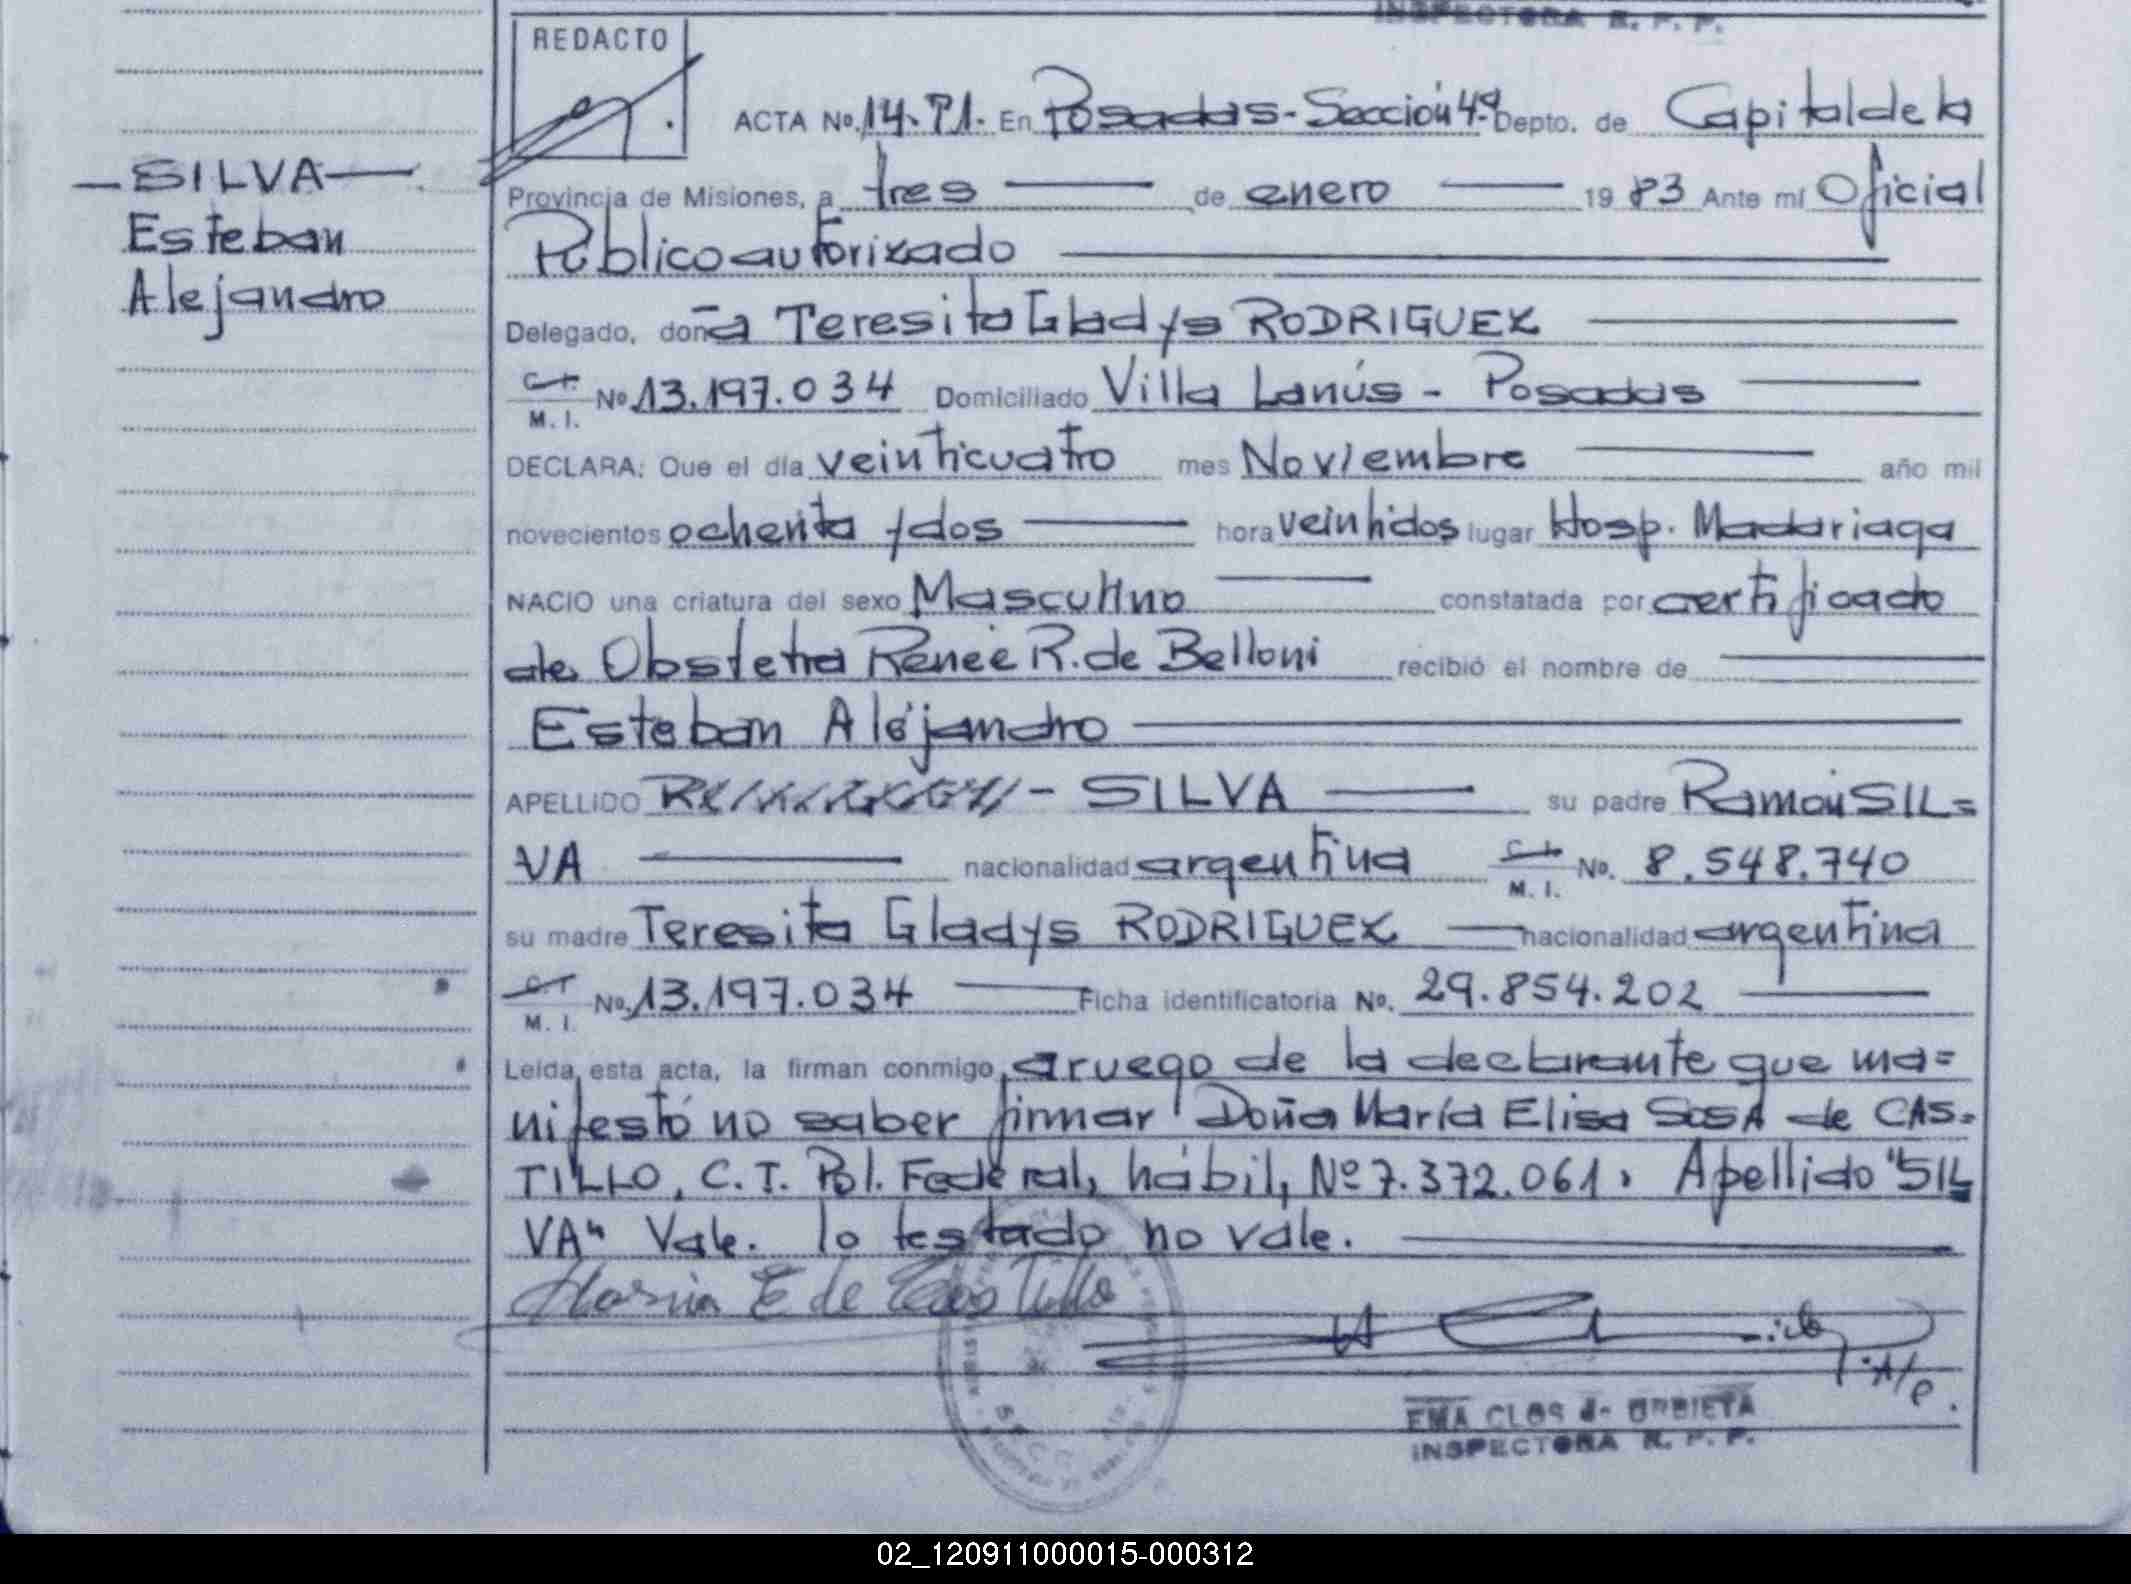 INSPECTORA R. P. P.
REDACTO
ACTA No. 14.71. En Posadas - Sección 4ª Depto. de Capital de la
Provincia de Misiones, a tres de enero 1983 Ante mí Oficial
Público autorizado
Delegado, doña Teresita Gladys RODRIGUEZ
C.I. M. I. No 13.197.034 Domiciliado Villa Lanús - Posadas
DECLARA: Que el día veinticuatro mes Noviembre año mil
novecientos ochenta y dos hora veintidos lugar Hosp. Madariaga
NACIO una criatura del sexo Masculino constatada por certificado
de Obstetra Renée R. de Belloni recibió el nombre de
Esteban Alejandro
APELLIDO - SILVA su padre Ramón SIL=
VA nacionalidad argentina C.I. M. I. No. 8.548.740
su madre Teresita Gladys RODRIGUEZ nacionalidad argentina
C.I. M. I. No. 13.197.034 Ficha identificatoria No. 29.854.202
Leída esta acta, la firman conmigo, a ruego de la declarante que ma=
nifestó no saber firmar Doña María Elisa SOSA de CAS=
TILLO, C.I. Pol. Federal, hábil, Nº 7.372.061. Apellido "SIL
VA" Vale. lo testado no vale.
María E de Castillo
EMA CLOS de URBIETA
INSPECTORA R. P. P.
- SILVA -
Esteban
Alejandro
02_120911000015-000312